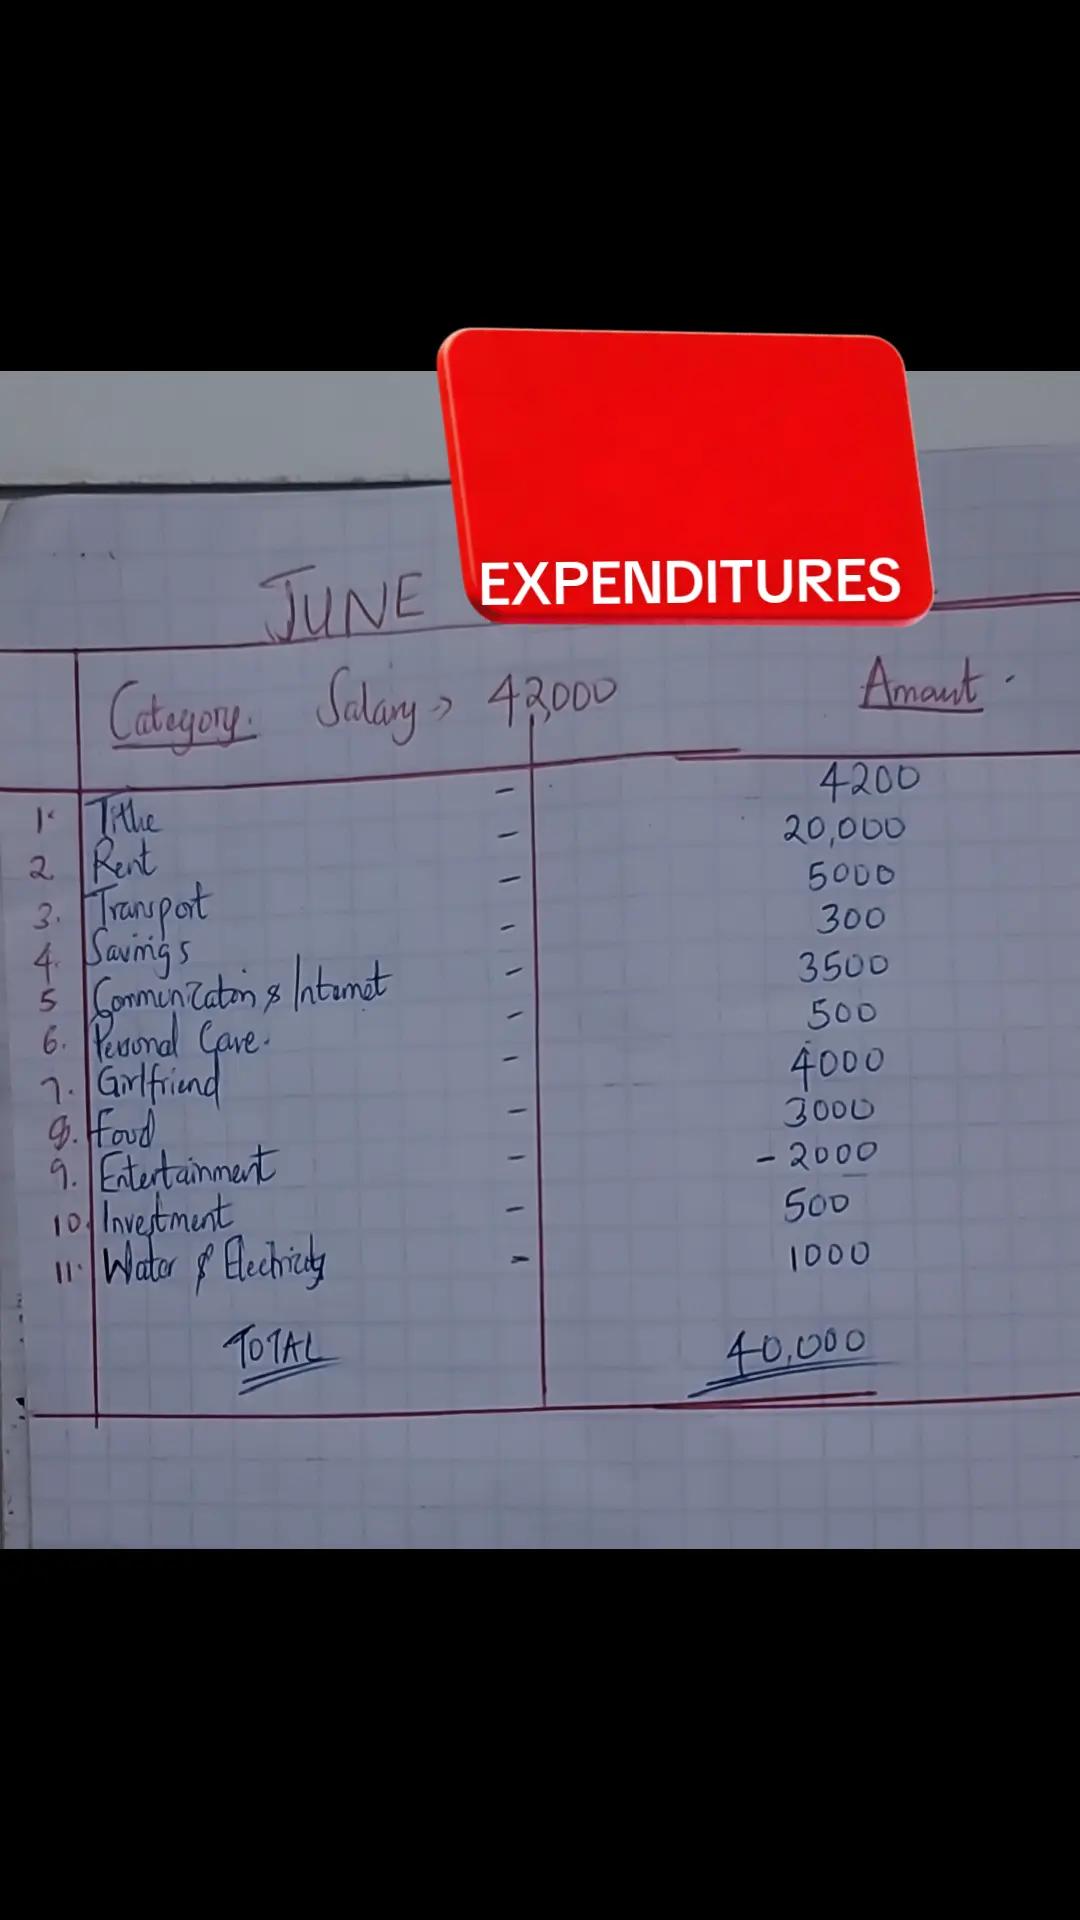 EXPENDITURES
JUNE
Category. Salary → 42,000 Amount.
1. Tithe - 4200
2. Rent - 20,000
3. Transport - 5000
4. Savings - 300
5 Communication & Internet - 3500
6. Personal Care. - 500
7. Girlfriend - 4000
8. Food - 3000
9. Entertainment - - 2000
10. Investment - 500
11. Water & Electricity - 1000
TOTAL 40,000